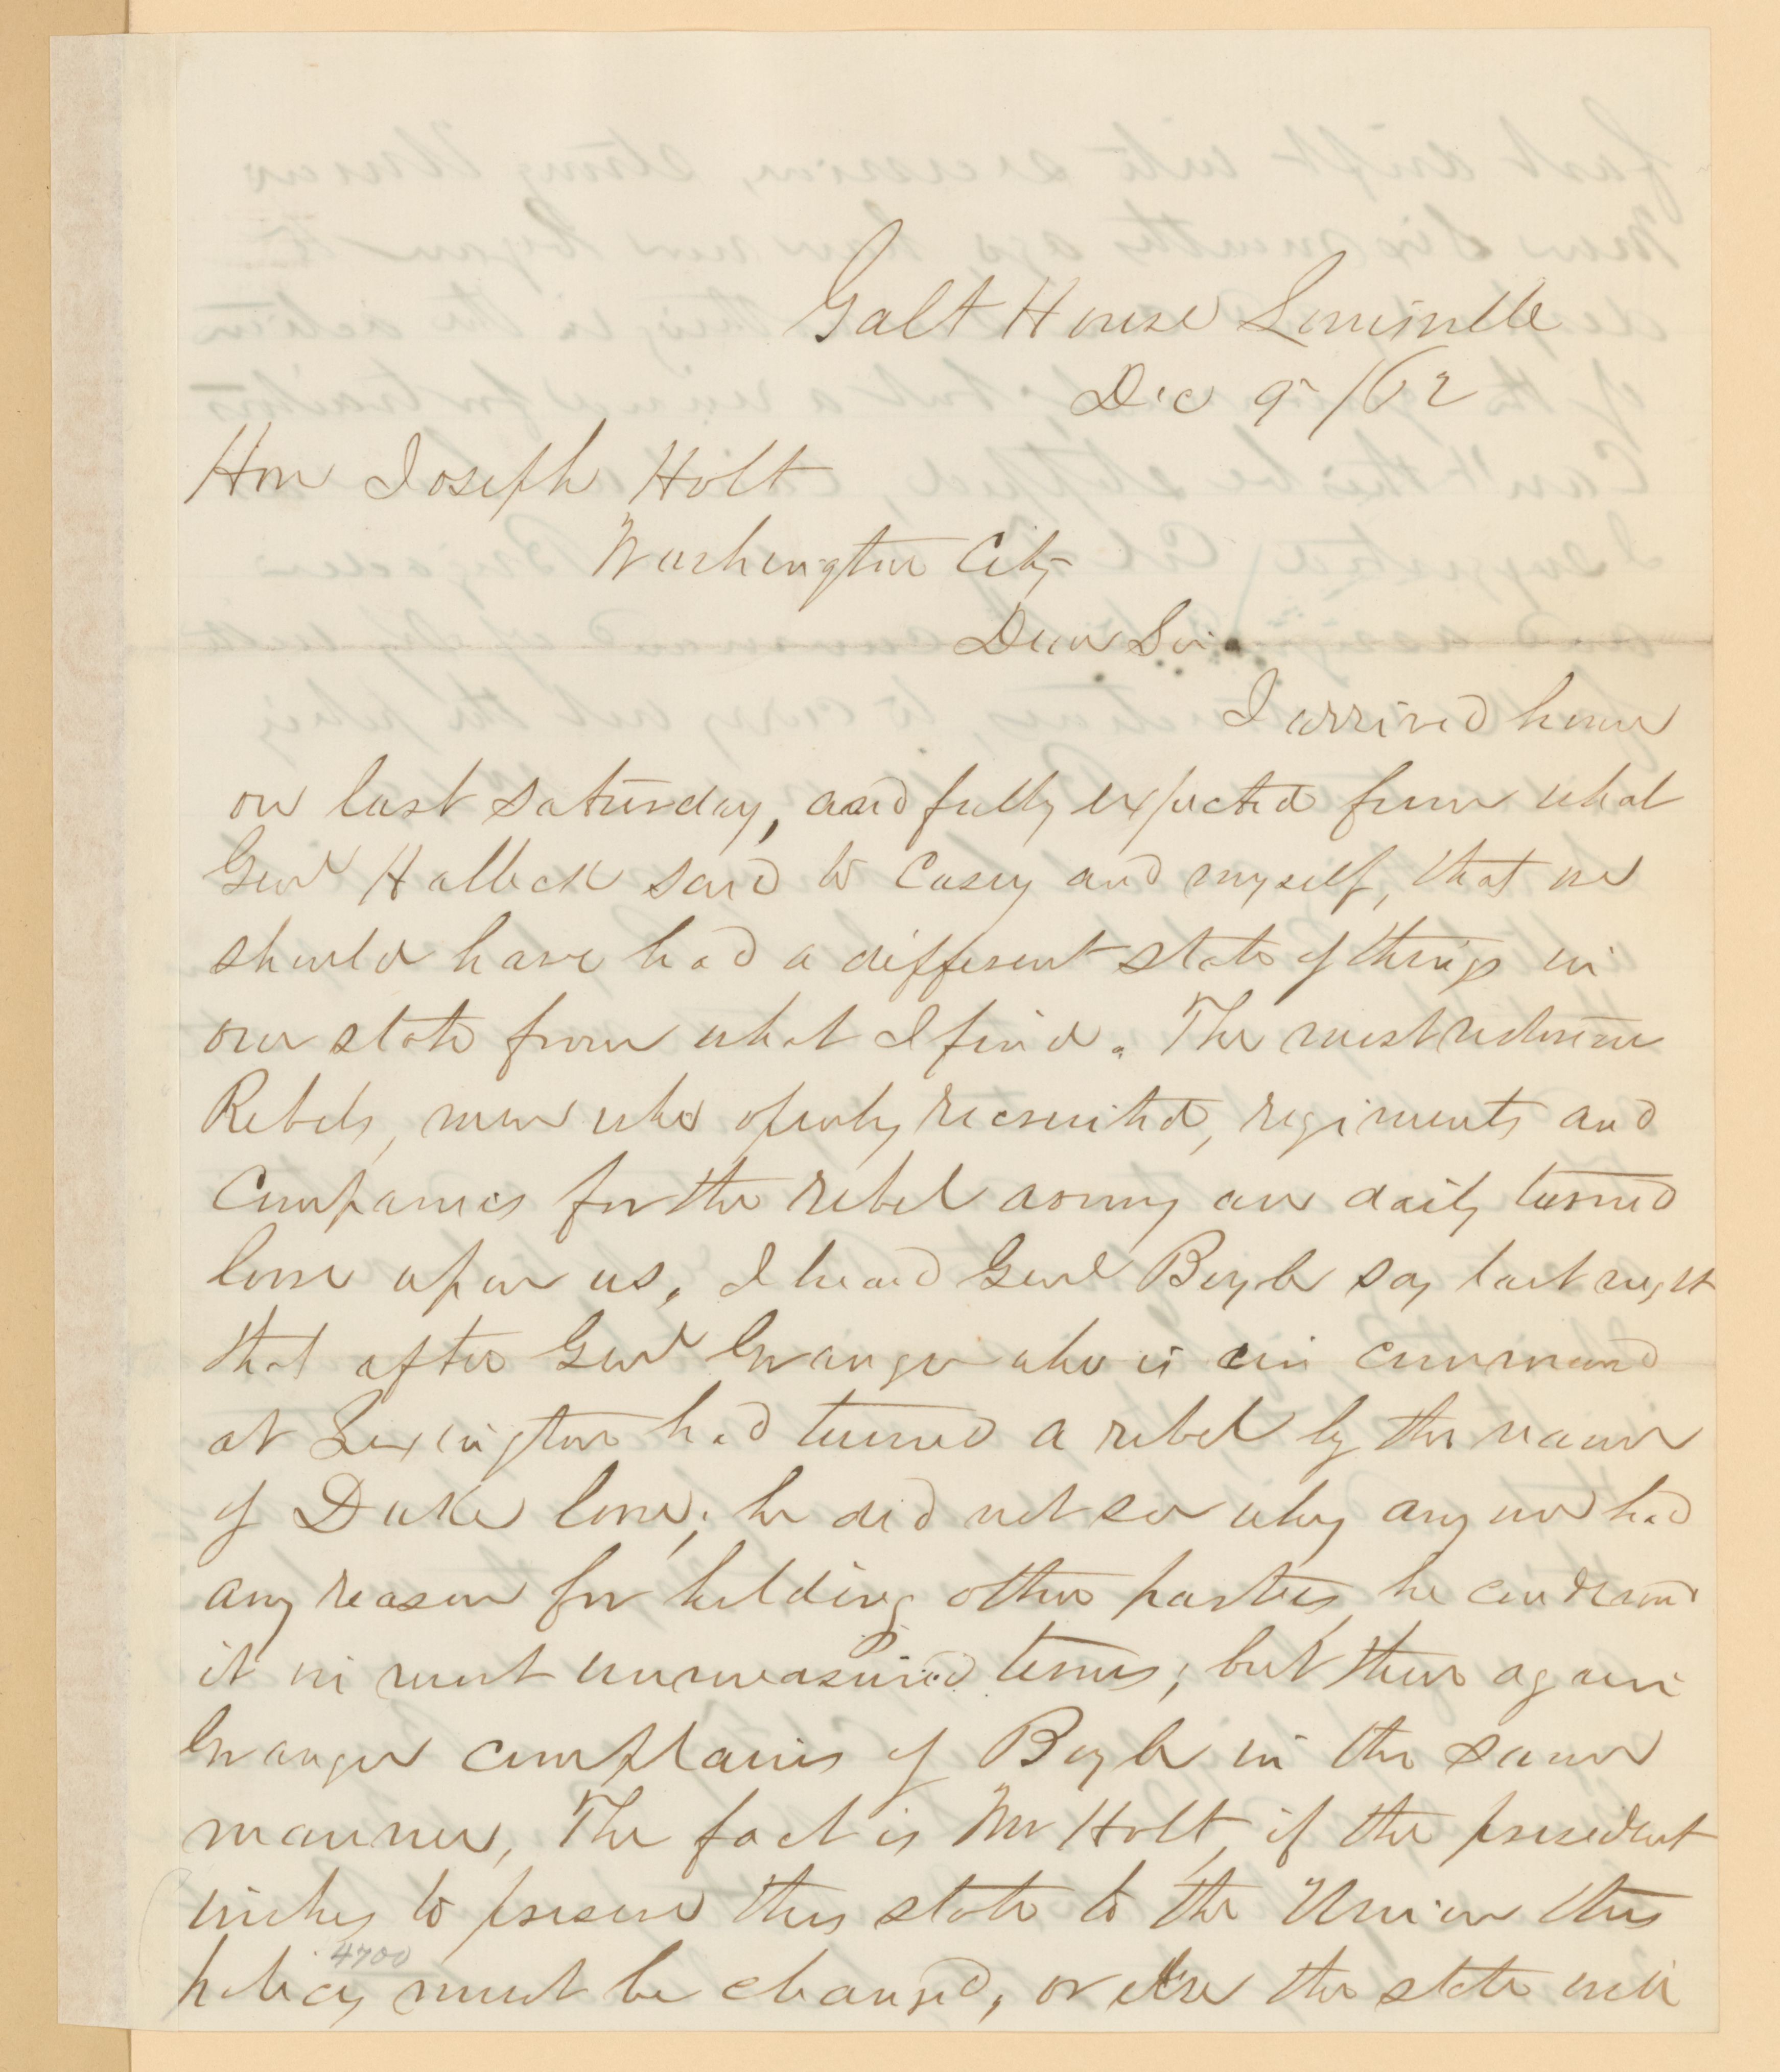 Galt House Louisville
Dec 9 /62
Hon Joseph Holt
Washington City
Dear Sir
I arrived home
on last Saturday, and fully expected from what
Genl Halleck said to Casey and myself, that we
should have had a different state of things in
our state from what I find. The most
Rebels, men who openly recruited, regiments and
Companies for the rebel army are daily turned
loose upon us, I heard Genl Boyle say last night
that after Genl Granger who is in command
at Lexington had turned a rebel by the name
of Duke loose; he did not see why any one had
any reason for holding other parties, he condemnd
it in most unmeasured terms; but then again
Granger complains of Boyle in the same
manner, The fact is Mr Holt, if the president
wishes to preserve this state to the Union this
4700
policy must be changed, or else the state will